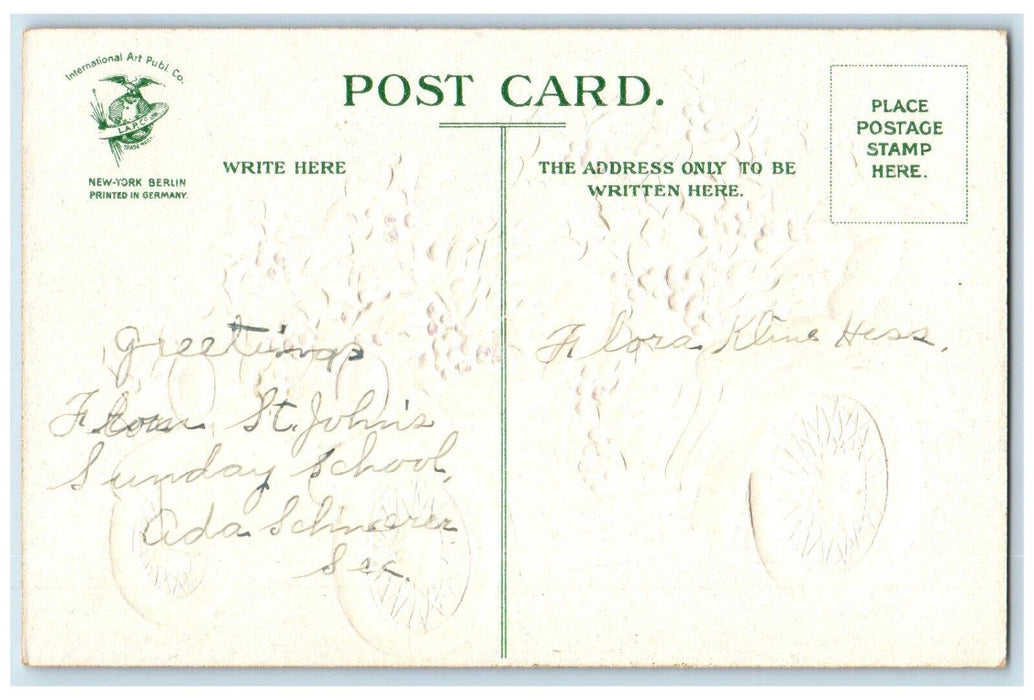 International Art Publ. Co.
I.A.P.Co.
TRADE MARK
NEW-YORK BERLIN
PRINTED IN GERMANY.
POST CARD.
WRITE HERE
THE ADDRESS ONLY TO BE
WRITTEN HERE.
PLACE
POSTAGE
STAMP
HERE.
Greetings
From St. John's
Sunday School,
Ada
Sec.
Flora Kline Hess.